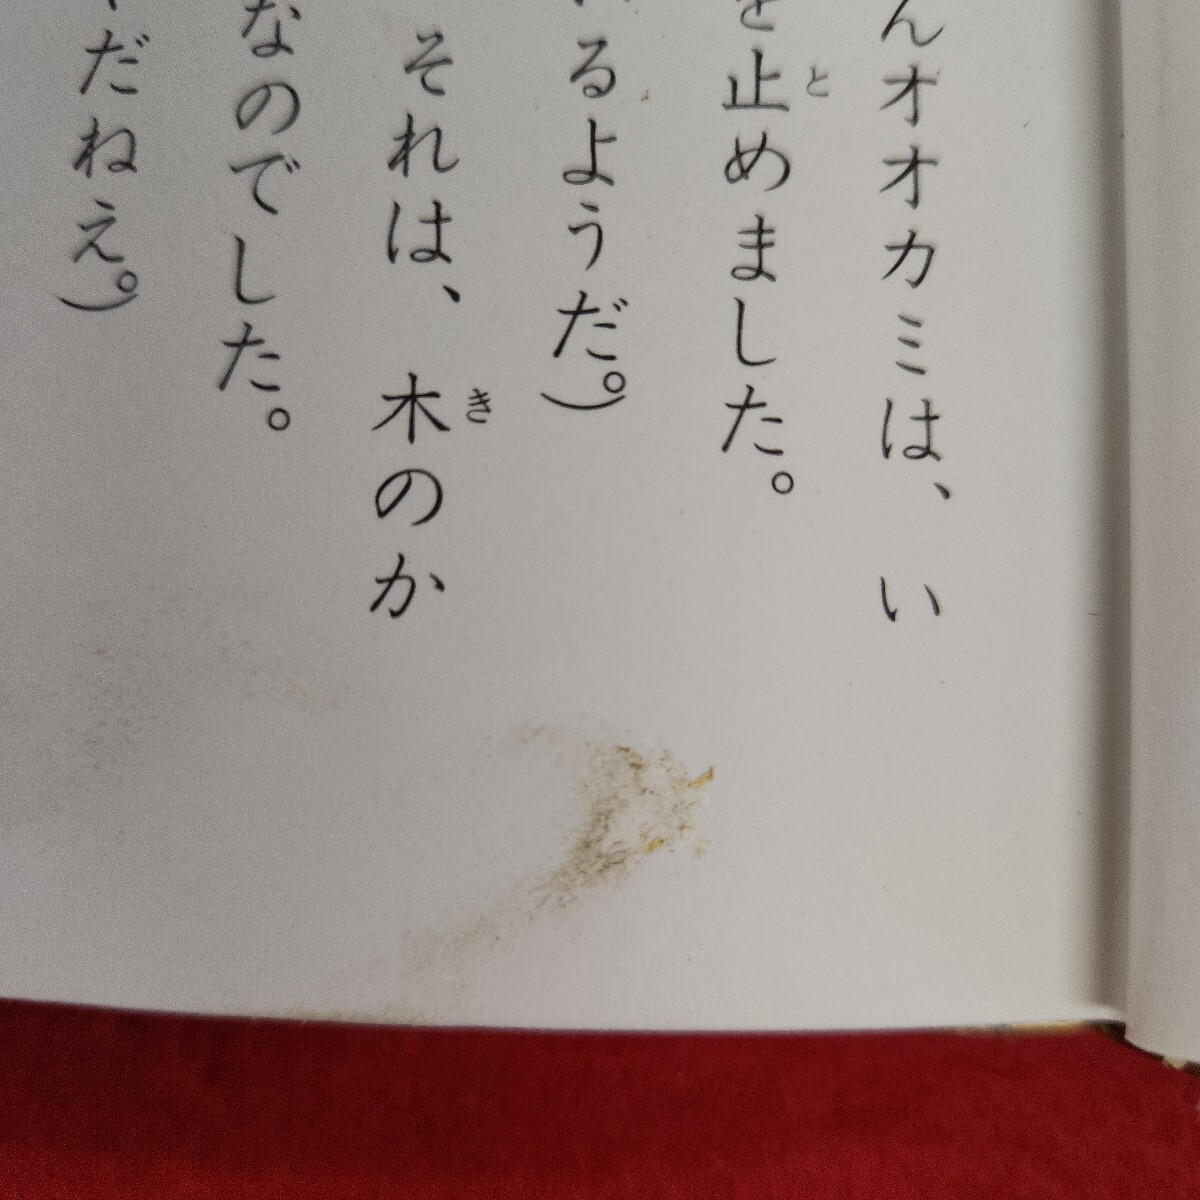 んオオカミは、い
を止めました。
と
るようだ。)
それは、木のか
き
なのでした。
だねえ。)